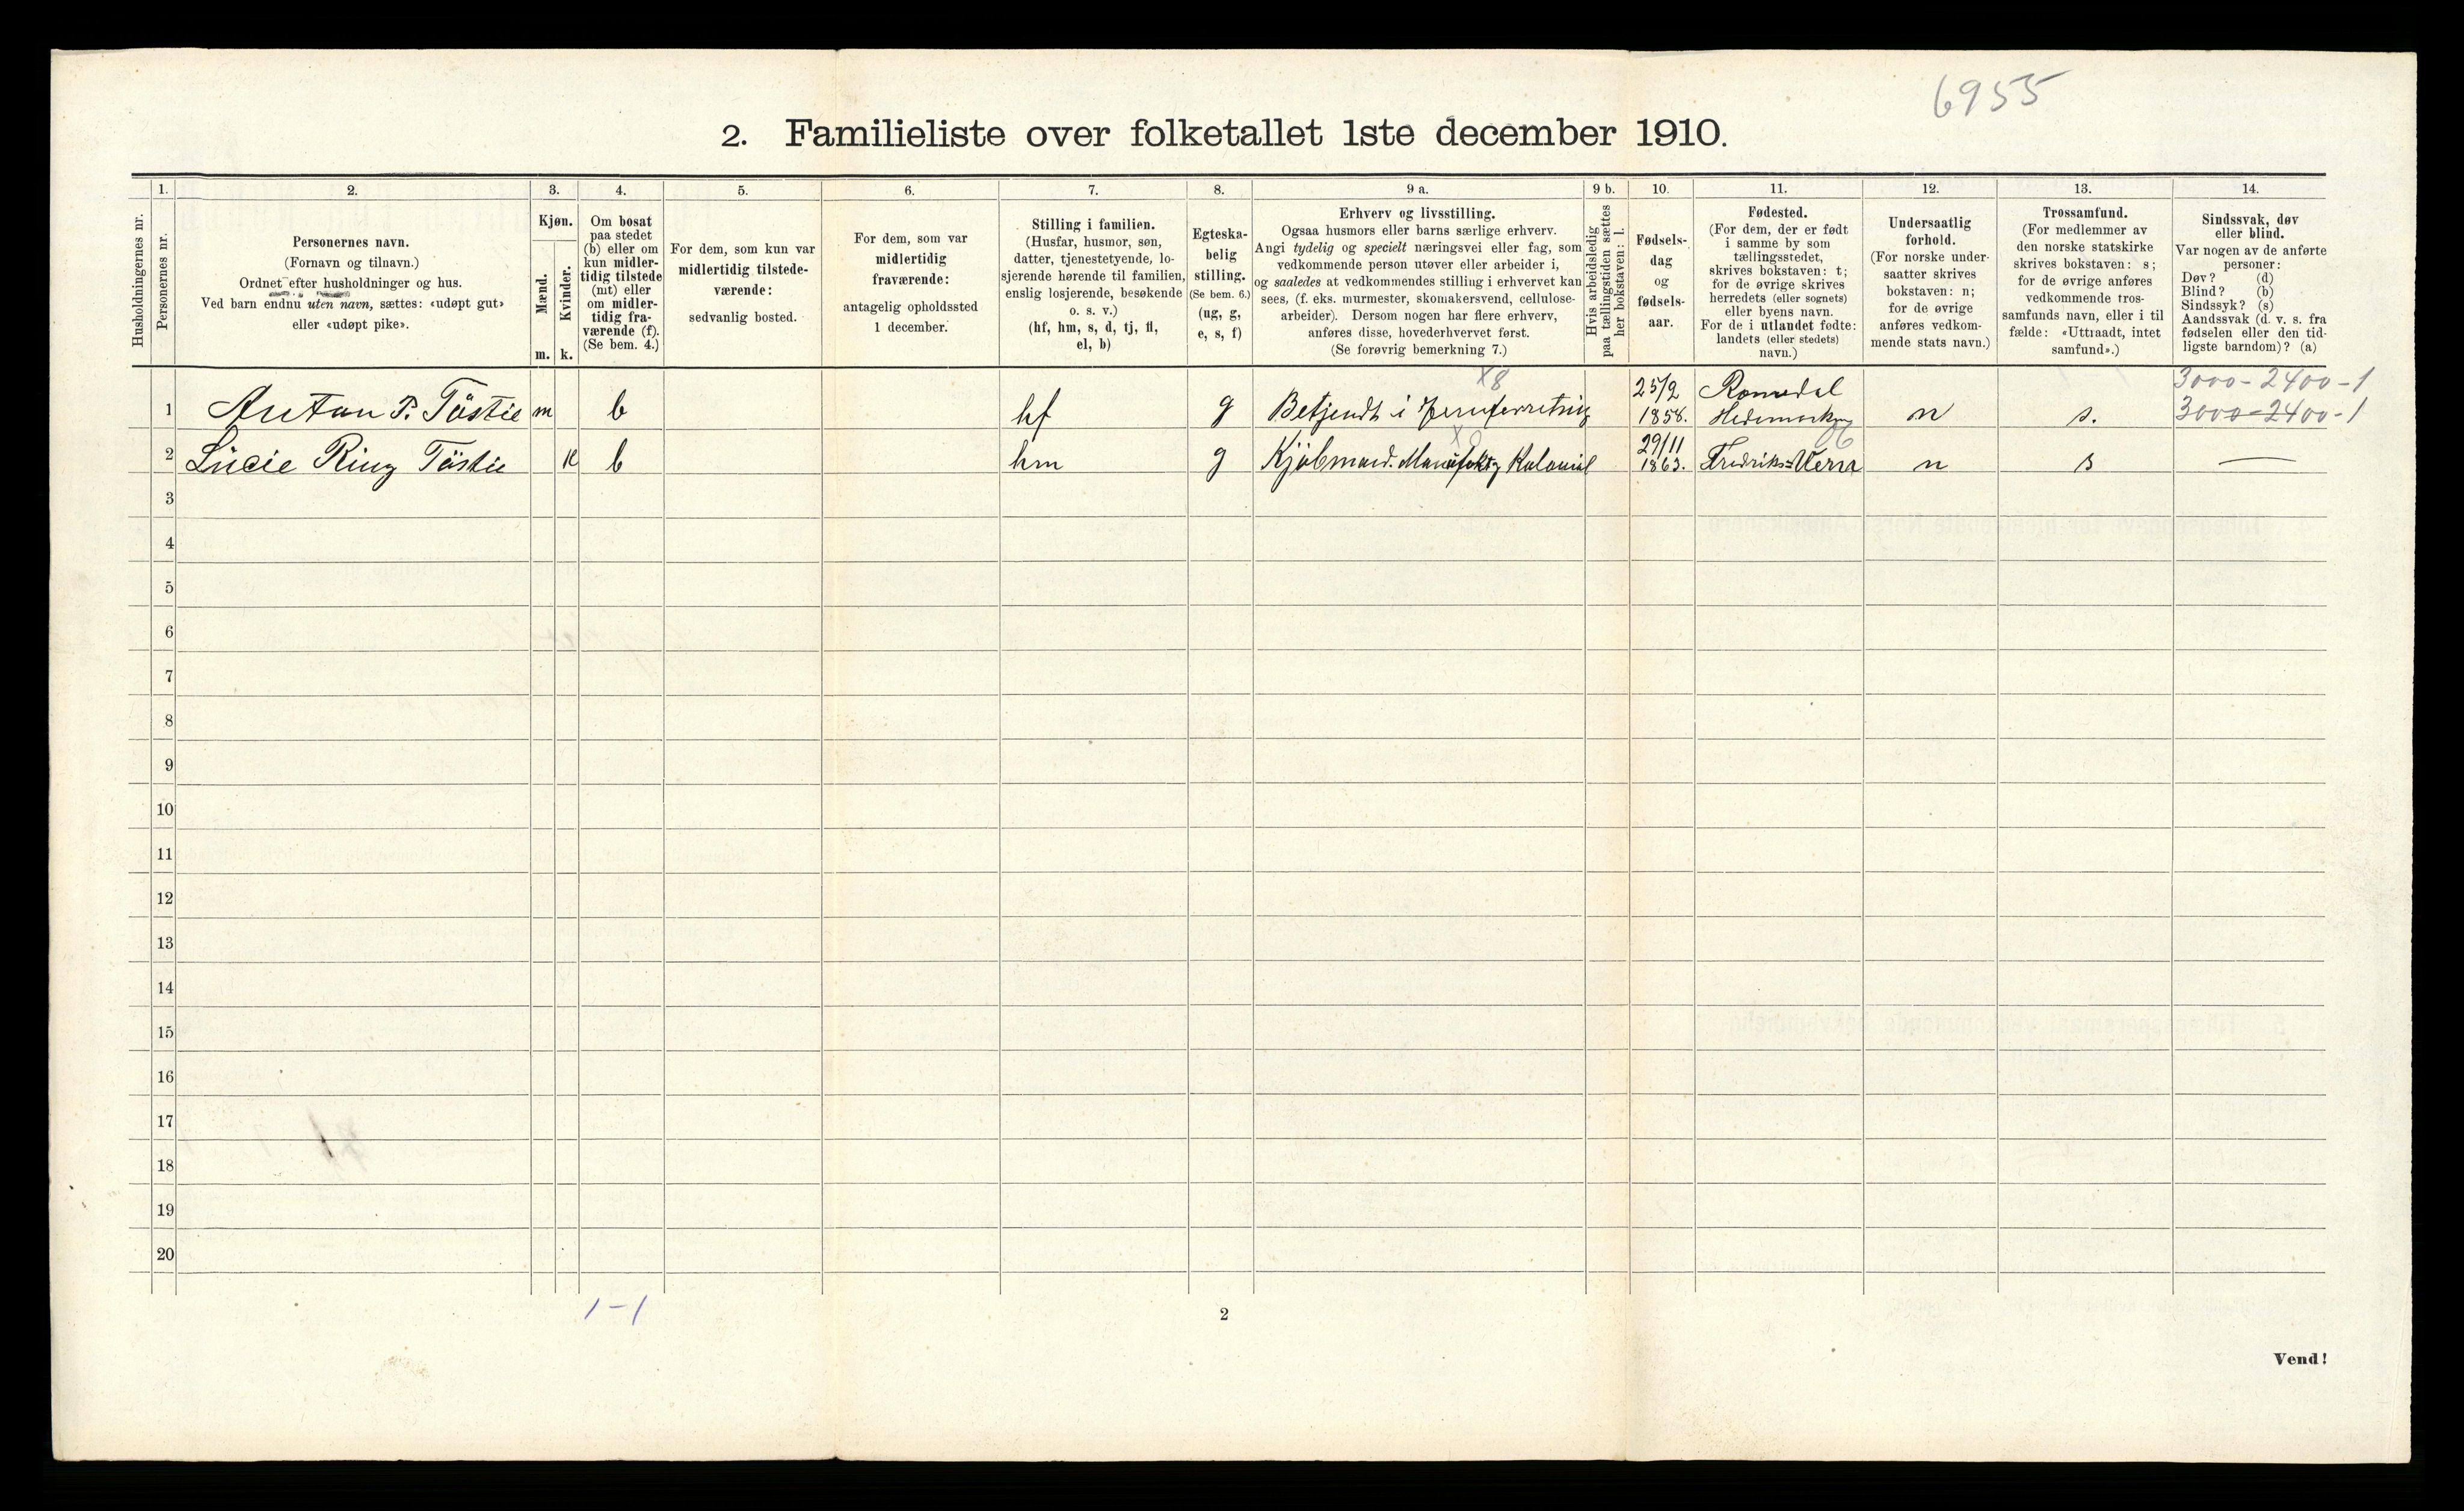 6955
2. Familieliste over folketallet 1ste december 1910.
Husholdningernes nr.
1.
Personernes nr.
2.
Personernes navn.
(Fornavn og tilnavn.)
Ordnet efter husholdninger og hus.
Ved barn endnu uten navn, sættes: «udøpt gut»
eller «udøpt pike».
3.
Kjøn.
Mænd.
m.
Kvinder.
k.
4.
Om bosat
paa stedet
(b) eller om
kun midler-
tidig tilstede
(mt) eller
om midler-
tidig fra-
værende (f).
(Se bem. 4.)
5.
For dem, som kun var
midlertidig tilstede-
værende:
sedvanlig bosted.
6.
For dem, som var
midlertidig
fraværende:
antagelig opholdssted
1 december.
7.
Stilling i familien.
(Husfar, husmor, søn,
datter, tjenestetyende, lo-
sjerende hørende til familien,
enslig losjerende, besøkende
o. s. v.)
(hf, hm, s, d, tj, fl,
el, b)
8.
Egteska-
belig
stilling.
(Se bem. 6.)
(ug, g,
e, s, f)
9 a.
Erhverv og livsstilling.
Ogsaa husmors eller barns særlige erhverv.
Angi tydelig og specielt næringsvei eller fag, som
vedkommende person utøver eller arbeider i,
og saaledes at vedkommendes stilling i erhvervet kan
sees, (f. eks. murmester, skomakersvend, cellulose-
arbeider). Dersom nogen har flere erhverv,
anføres disse, hovederhvervet først.
(Se forøvrig bemerkning 7.)
9 b.
Hvis arbeidsledig
paa tællingstiden sættes
her bokstaven: l.
10.
Fødsels-
dag
og
fødsels-
aar.
11.
Fødested.
(For dem, der er født
i samme by som
tællingsstedet,
skrives bokstaven: t;
for de øvrige skrives
herredets (eller sognets)
eller byens navn.
For de i utlandet fødte:
landets (eller stedets)
navn.)
12.
Undersaatlig
forhold.
(For norske under-
saatter skrives
bokstaven: n;
for de øvrige
anføres vedkom-
mende stats navn.)
13.
Trossamfund.
(For medlemmer av
den norske statskirke
skrives bokstaven: s;
for de øvrige anføres
vedkommende tros-
samfunds navn, eller i til
fælde: «Uttraadt, intet
samfund».)
14.
Sindssvak, døv
eller blind.
Var nogen av de anførte
personer:
Døv? (d)
Blind? (b)
Sindssyk? (s)
Aandssvak (d. v. s. fra
fødselen eller den tid-
ligste barndom)? (a)
X8
3000-2400-1
1 Anton P. Töstie m b hf g Betjendt i 25/2 1858. Romedal Hedemarken n s. 3000-2400-1
2 Lücie Ring Töstie k b hm g Kjöbmand. Manüfakt. Kolonial 29/11 1863. Fredriks=Værn n s —
3
4
5
6
7
8
9
10
11
12
13
14
15
16
17
18
19
20
1-1
2
Vend!